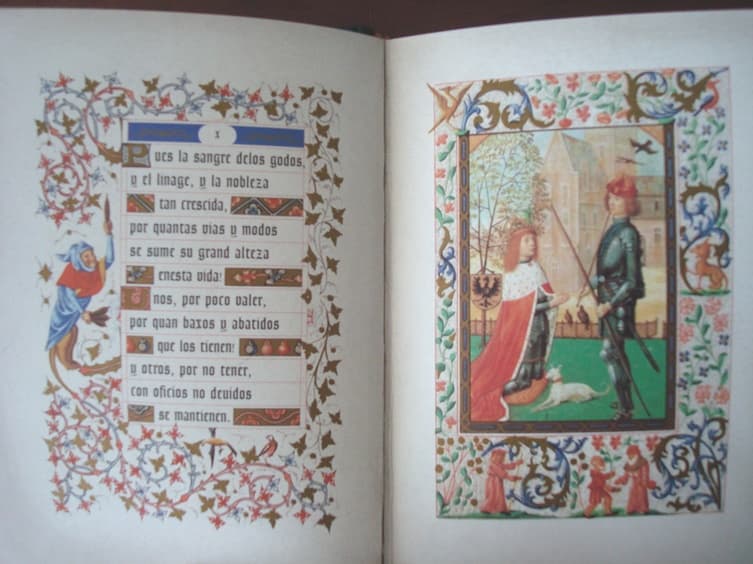 x
Pues la sangre delos godos,
y el linage, y la nobleza
tan crescida,
por quantas vias y modos
se sume su grand alteza
enesta vida!
Unos, por poco valer,
por quan baxos y abatidos
que los tienen!
y otros, por no tener,
con oficios no devidos
se mantienen.